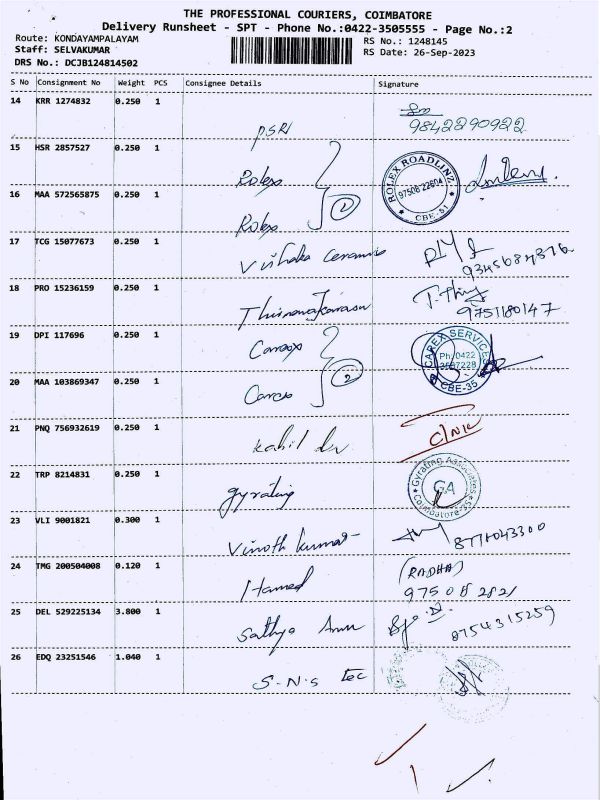 THE PROFESSIONAL COURIERS, COIMBATORE
Delivery Runsheet - SPT - Phone No.:0422-3505555 - Page No.:2
Route: KONDAYAMPALAYAM RS No.: 1248145
Staff: SELVAKUMAR RS Date: 26-Sep-2023
DRS No.: DCJB124814502
S No Consignment No Weight PCS Consignee Details Signature
14 KRR 1274832 0.250 1
PSRI 9842290922
15 HSR 2857527 0.250 1
Rolex
ROLEX ROADLINZ
97508 22604
CBE-51
16 MAA 572565875 0.250 1
Rolex 1
17 TCG 15077673 0.250 1
Vishaka Ceramics
9345684376
18 PRO 15236159 0.250 1
Thirunavukarasu 9751180147
19 DPI 117696 0.250 1
Carex
CAREX SERVICES
Ph: 0422
CBE-35
20 MAA 103869347 0.250 1
Carex 2
21 PNQ 756932619 0.250 1
Clinic
22 TRP 8214831 0.250 1
gyrating
Gyrating Associates
GA
Coimbatore-35
23 VLI 9001821 0.300 1
Vinoth kumar
24 TMG 200504008 0.120 1
(RADHA)
Hamed 97508 2821
25 DEL 529225134 3.800 1
Sathya 8754315259
26 EDQ 23251546 1.040 1
S.N.S Tec